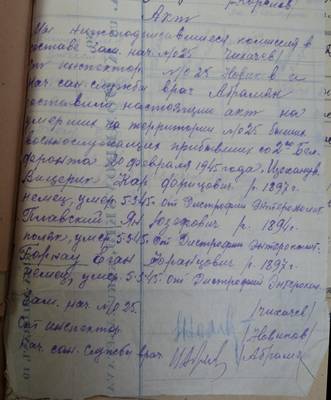 Акт
Мы нижеподписавшиеся, комиссия в
составе Зам. нач. м/о 25 Чихачев/
ст инспектор м/о 25 Новиков и
нач. сан. службы врач Абрамян
составили настоящий акт на
умерших на территории м/о 25 бывших
военнослужащих прибывших со 2го Бел.
фронта 20 февраля 1945 года,
Вищерик Кар р. 1897 г.
немец, умер 5.3.45. от Дистрофии Энтероколит.
Ян Юзефович р. 1891 г.
поляк, умер. 5.3.45. от Дистрофии Энтероколит.
Борнау Иоган Францович р. 1897 г.
немец, умер. 5.3.45. от Дистрофии Энтерокол.
Зам. нач. м/о 25. /Чихачев/
ст инспектор /Новиков/
нач. сан. службы врач /Абрамян/